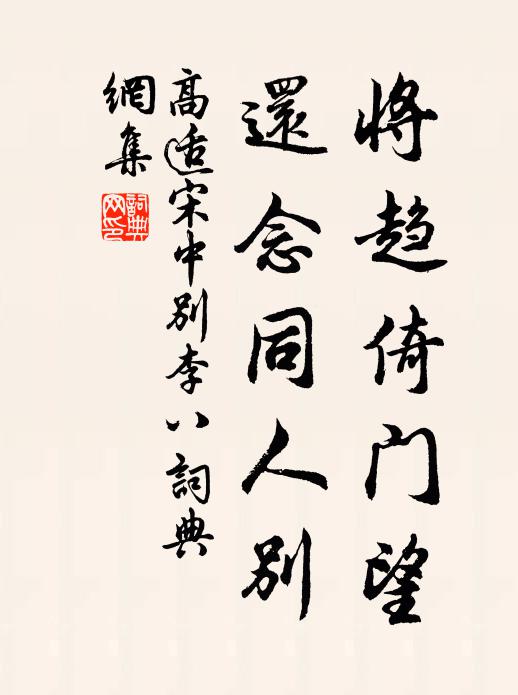 将趋倚门望
還念同人别
高适宋中别李八詞典
網集
詞典网印